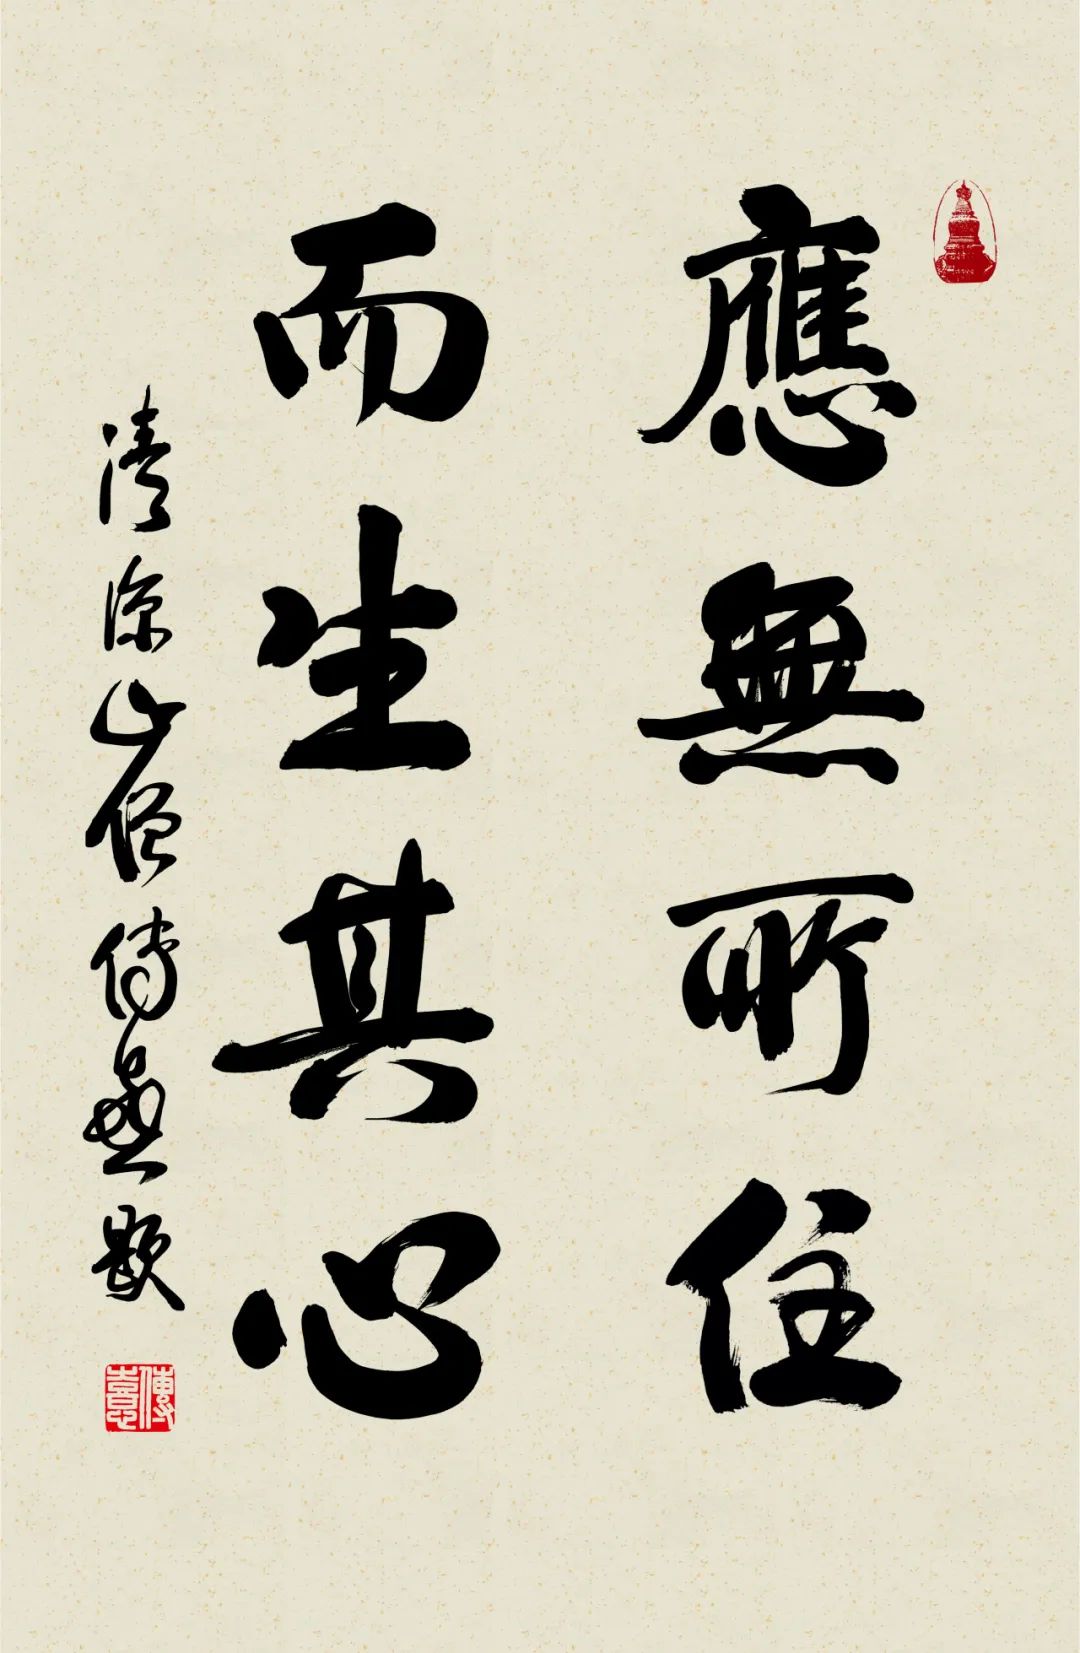 應無所住
而生其心
清涼山僧傳憙題
傳憙